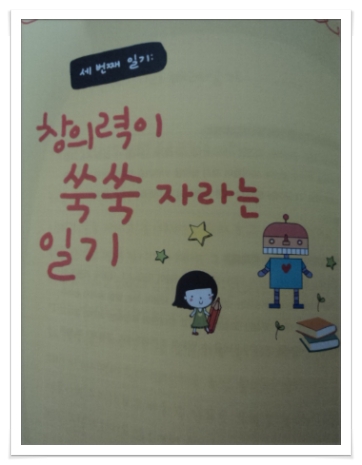 세 번째 일기:
창의력이
쑥쑥 자라는
일기